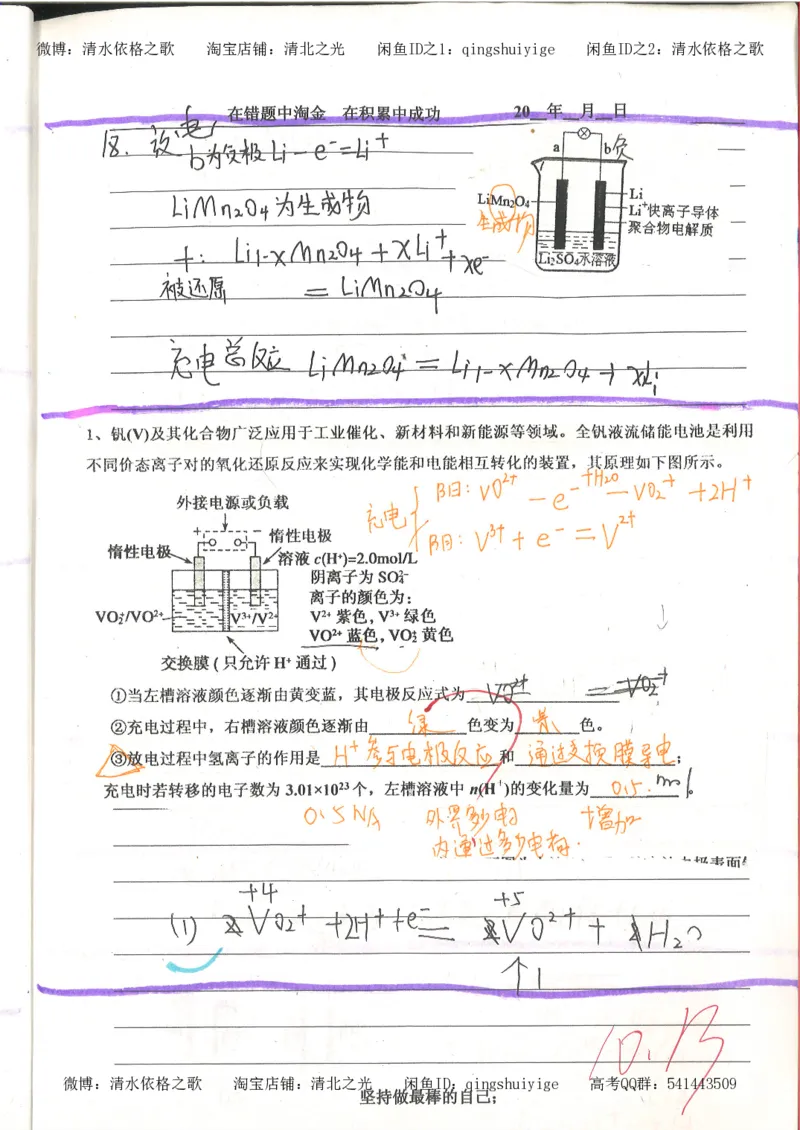 微博：清水依格之歌 淘宝店铺：清北之光 闲鱼ID之1：qingshuiyige 闲鱼ID之2：清水依格之歌
在错题中淘金 在积累中成功 20__年__月__日
18. 设电
b为负极 Li-e⁻=Li⁺
LiMn₂O₄为生成物
+：Li₁₋ₓMn₂O₄+xLi⁺+xe⁻
被还原 =LiMn₂O₄
充电总反应 LiMn₂O₄=Li₁₋ₓMn₂O₄+xLi
a b 负
LiMn₂O₄
生成物
Li
Li⁺快离子导体
聚合物电解质
Li₂SO₄水溶液
1、钒(V)及其化合物广泛应用于工业催化、新材料和新能源等领域。全钒液流储能电池是利用
不同价态离子对的氧化还原反应来实现化学能和电能相互转化的装置，其原理如下图所示。
充电
阳：VO²⁺-e⁻+H₂O-VO₂⁺+2H⁺
阴：V³⁺+e⁻=V²⁺
外接电源或负载
+ −
惰性电极
惰性电极
溶液 c(H⁺)=2.0mol/L
阴离子为 SO₄²⁻
离子的颜色为：
V²⁺ 紫色，V³⁺ 绿色
VO²⁺ 蓝色，VO₂⁺ 黄色
VO₂⁺/VO²⁺
V³⁺/V²⁺
交换膜（只允许 H⁺ 通过）
①当左槽溶液颜色逐渐由黄变蓝，其电极反应式为 VO²⁺ =VO₂⁺
②充电过程中，右槽溶液颜色逐渐由 绿 色变为 紫 色。
③放电过程中氢离子的作用是 H⁺参与电极反应 和 通过交换膜导电；
充电时若转移的电子数为 3.01×10²³个，左槽溶液中 n(H⁺)的变化量为 0.5mol。
0.5NA 外界多少电子 增加
内通过多少电荷.
+4 +5
(1) VO₂⁺+2H⁺+e⁻= VO²⁺+H₂O
↑1
10.13
微博：清水依格之歌 淘宝店铺：清北之光 闲鱼ID：qingshuiyige 高考QQ群：541443509
坚持做最棒的自己；